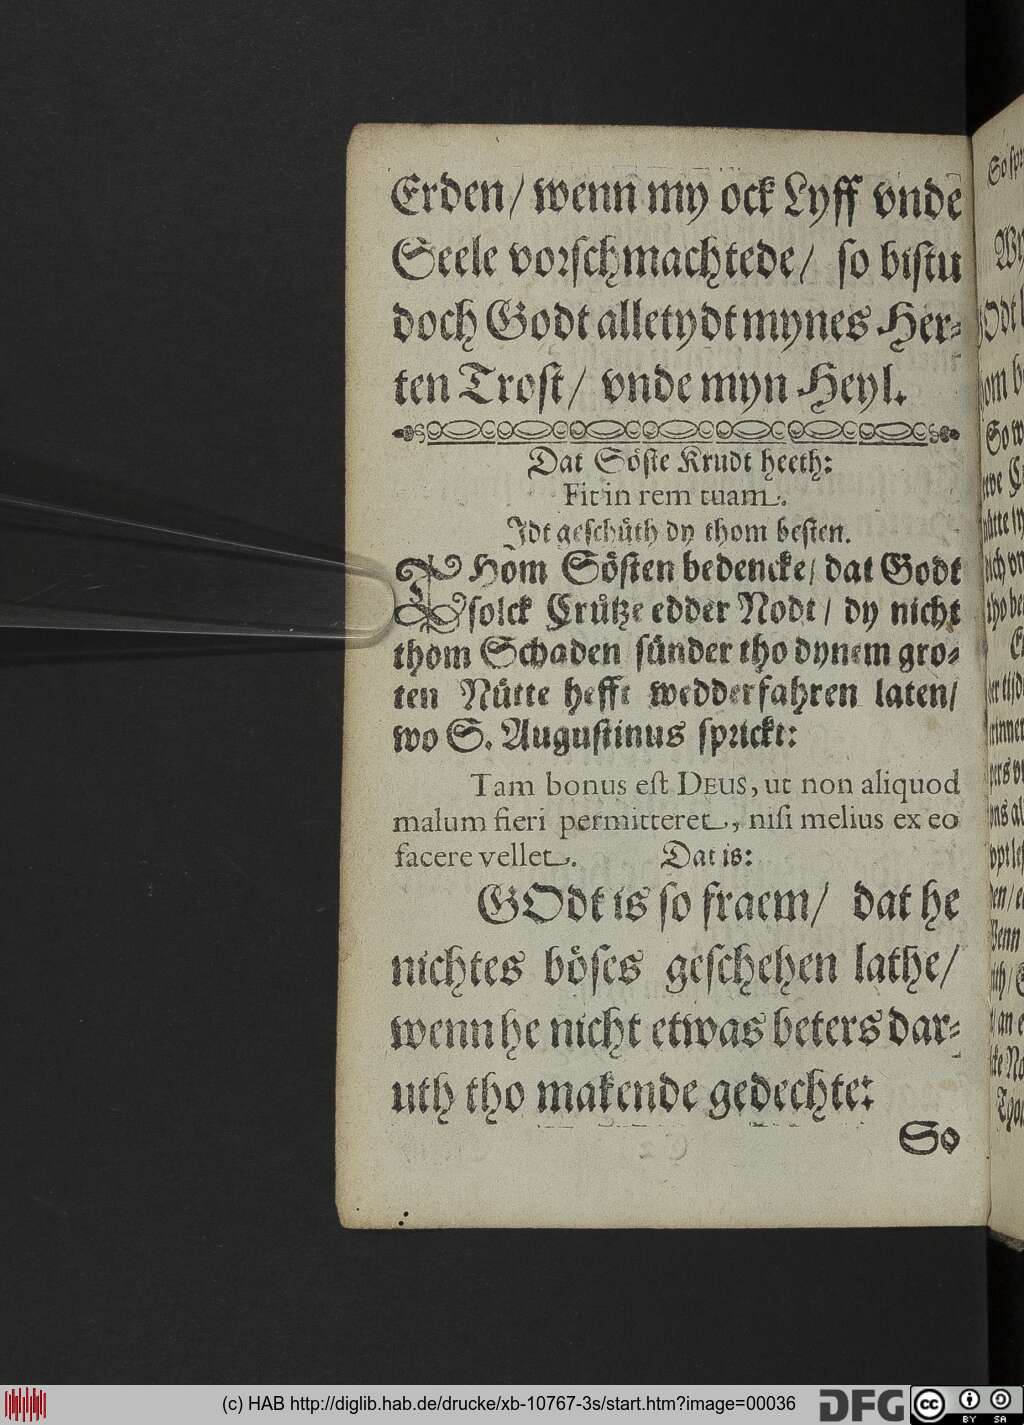 Erden/ wenn my ock Lyff vnde
Seele vorſchmachtede/ ſo biſtu
doch Godt alletydt mynes Her⸗
ten Troſt/ vnde myn Heyl.
Dat Söſte Krudt heeth:
Fit in rem tuam.
Jdt geſchüth dy thom beſten.
THom Söſten bedencke/ dat Godt
ſolck Crütze edder Nodt/ dy nicht
thom Schaden ſünder tho dynem gro⸗
ten Nütte hefft wedderfahren laten/
wo S. Auguſtinus ſprickt:
Tam bonus eſt DEUS, ut non aliquod
malum fieri permitteret, niſi melius ex eo
facere vellet. Dat is:
GOdt is ſo fraem/ dat he
nichtes böſes geſchehen lathe/
wenn he nicht etwas beters dar⸗
uth tho makende gedechte:
So
So ſpr
(c) HAB http://diglib.hab.de/drucke/xb-10767-3s/start.htm?image=00036
DFG
cc
BY SA